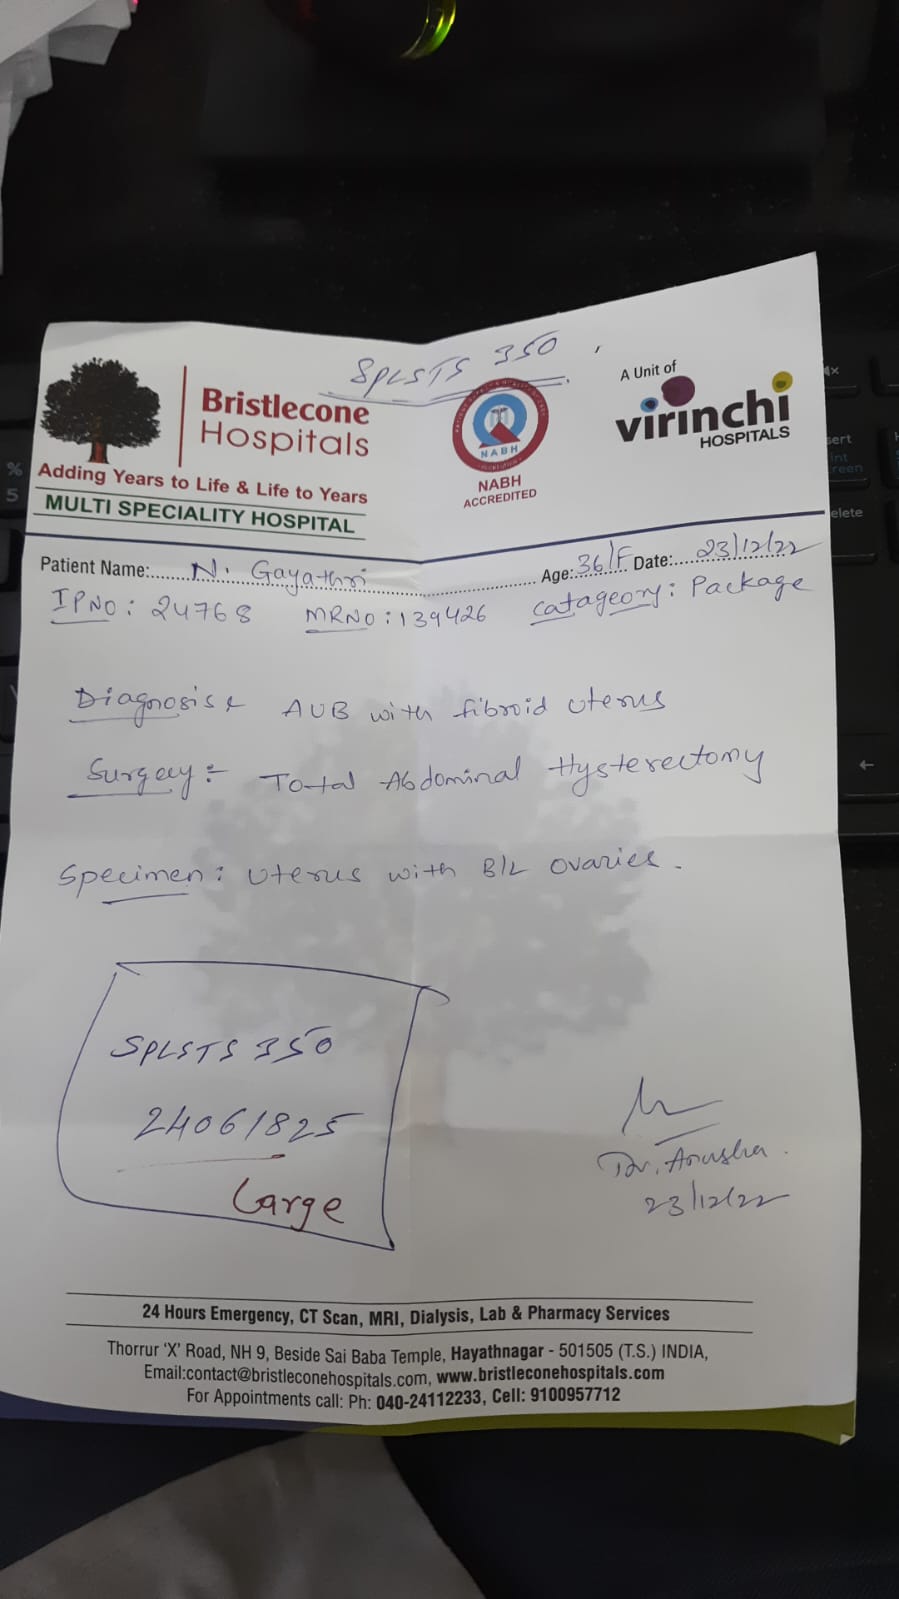 SPLSTS 350
Bristlecone
Hospitals
Adding Years to Life & Life to Years
MULTI SPECIALITY HOSPITAL
NABH
NABH
ACCREDITED
A Unit of
virinchi
HOSPITALS
Patient Name:...... N. Gayathri ...... Age: 36/F Date: 23/12/22
IPNO: 24768 MRNO: 139426 Catageory: Package
Diagnosis: AUB with fibroid uterus
Surgery:- Total Abdominal Hysterectomy
Specimen: Uterus with B/L ovaries.
SPLSTS 350
24061825
Large
Dr. Anusha.
23/12/22
24 Hours Emergency, CT Scan, MRI, Dialysis, Lab & Pharmacy Services
Thorrur 'X' Road, NH 9, Beside Sai Baba Temple, Hayathnagar - 501505 (T.S.) INDIA,
Email:contact@bristleconehospitals.com, www.bristleconehospitals.com
For Appointments call: Ph: 040-24112233, Cell: 9100957712
%
5
ert
int
reen
elete